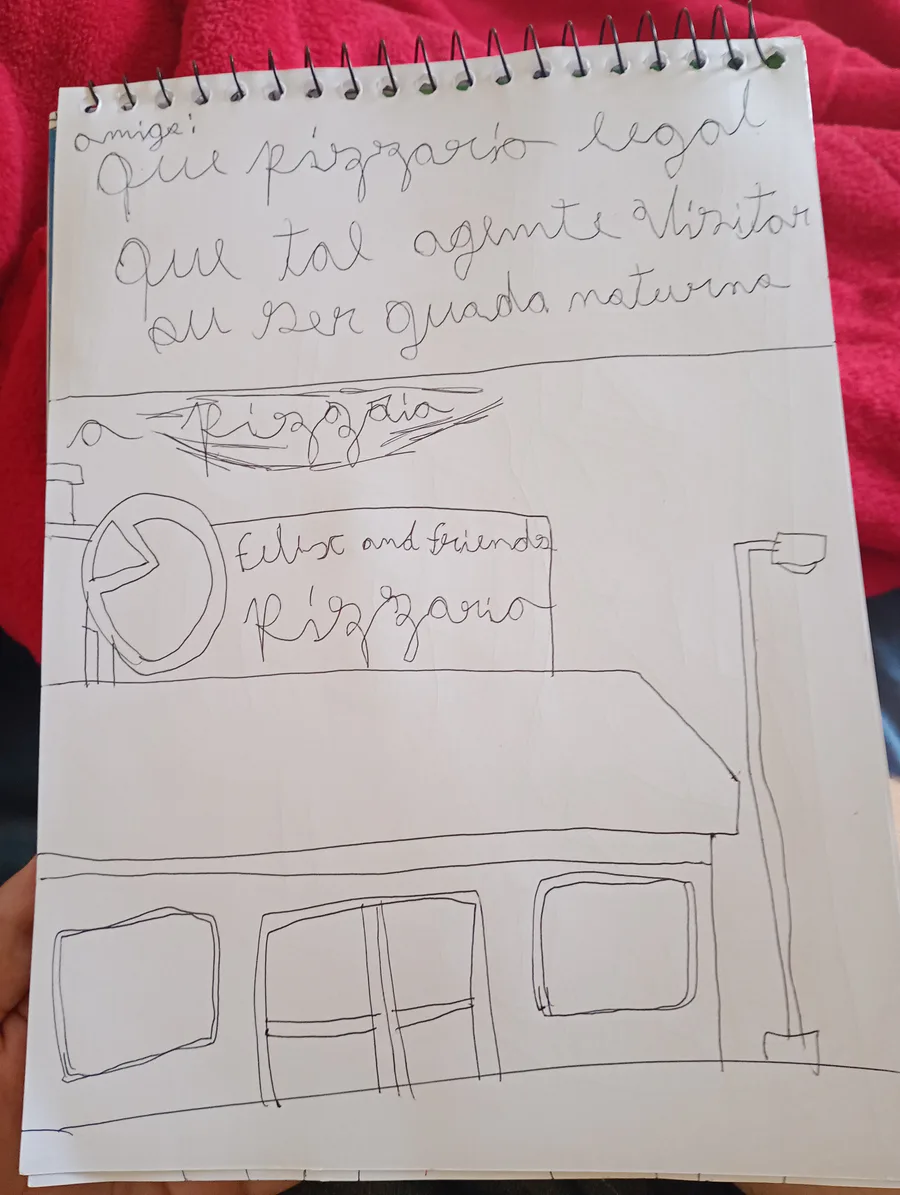 amige:
que pizzaria legal
que tal agemte vizitar
ou ser guada noturna
a pizzaia
Felix and friends
pizzaria